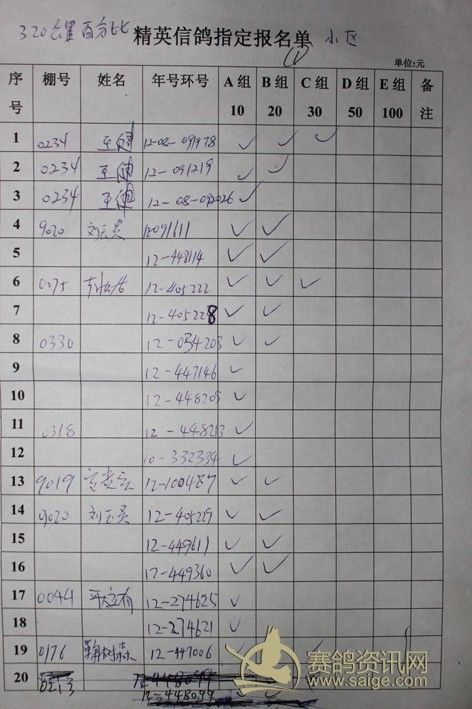 320公里百分比 精英信鸽指定报名单 小区
①
单位:元
序号 棚号 姓名 年号环号 A组10 B组20 C组30 D组50 E组100 备注
1 0234 12-08-091978 ✓ ✓ ✓
2 0234 12-091219 ✓ ✓
3 0234 12-08-092026 ✓
4 9020 刘玉昊 12091611 ✓ ✓
5 12-448114 ✓ ✓
6 0075 12-405222 ✓ ✓ ✓
7 12-405228 ✓ ✓
8 0330 12-054203 ✓ ✓
9 12-447146 ✓
10 12-448209 ✓
11 0318 12-448213 ✓
12 10-332334 ✓
13 9019 12-100487 ✓ ✓
14 9020 刘玉昊 12-405229 ✓ ✓
15 12-449611 ✓ ✓
16 12-449360 ✓ ✓
17 0044 12-274625 ✓
18 12-274621 ✓
19 0176 12-447006 ✓
20 0213
12-448099
赛鸽资讯网
www.saige.com